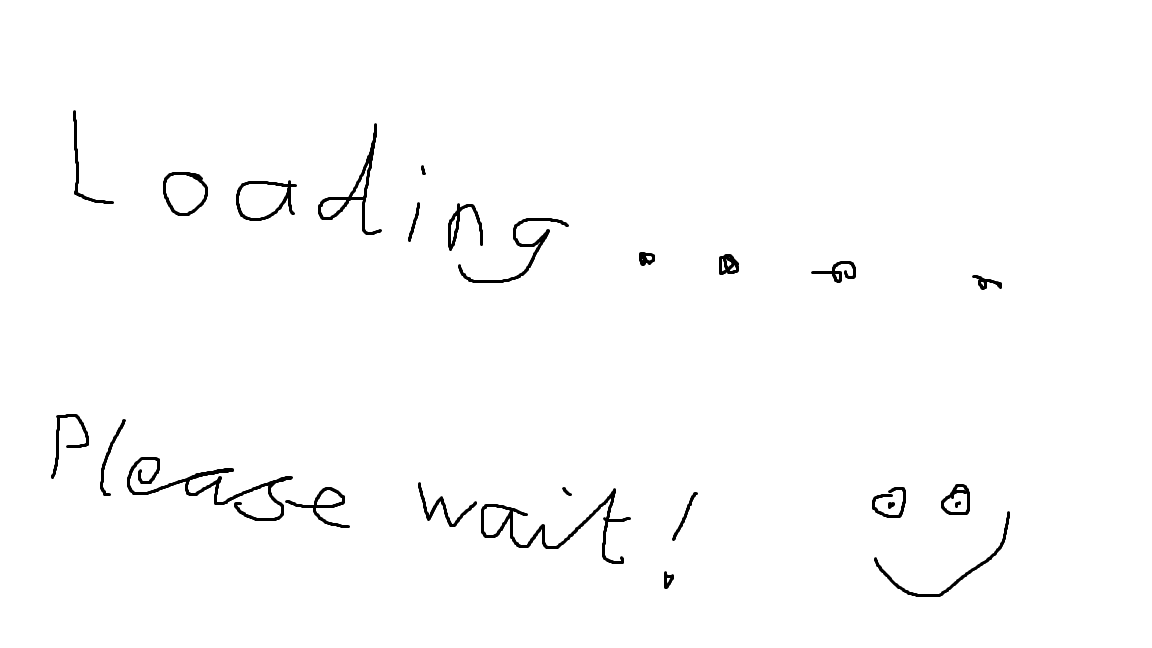 Loading....
Please wait!